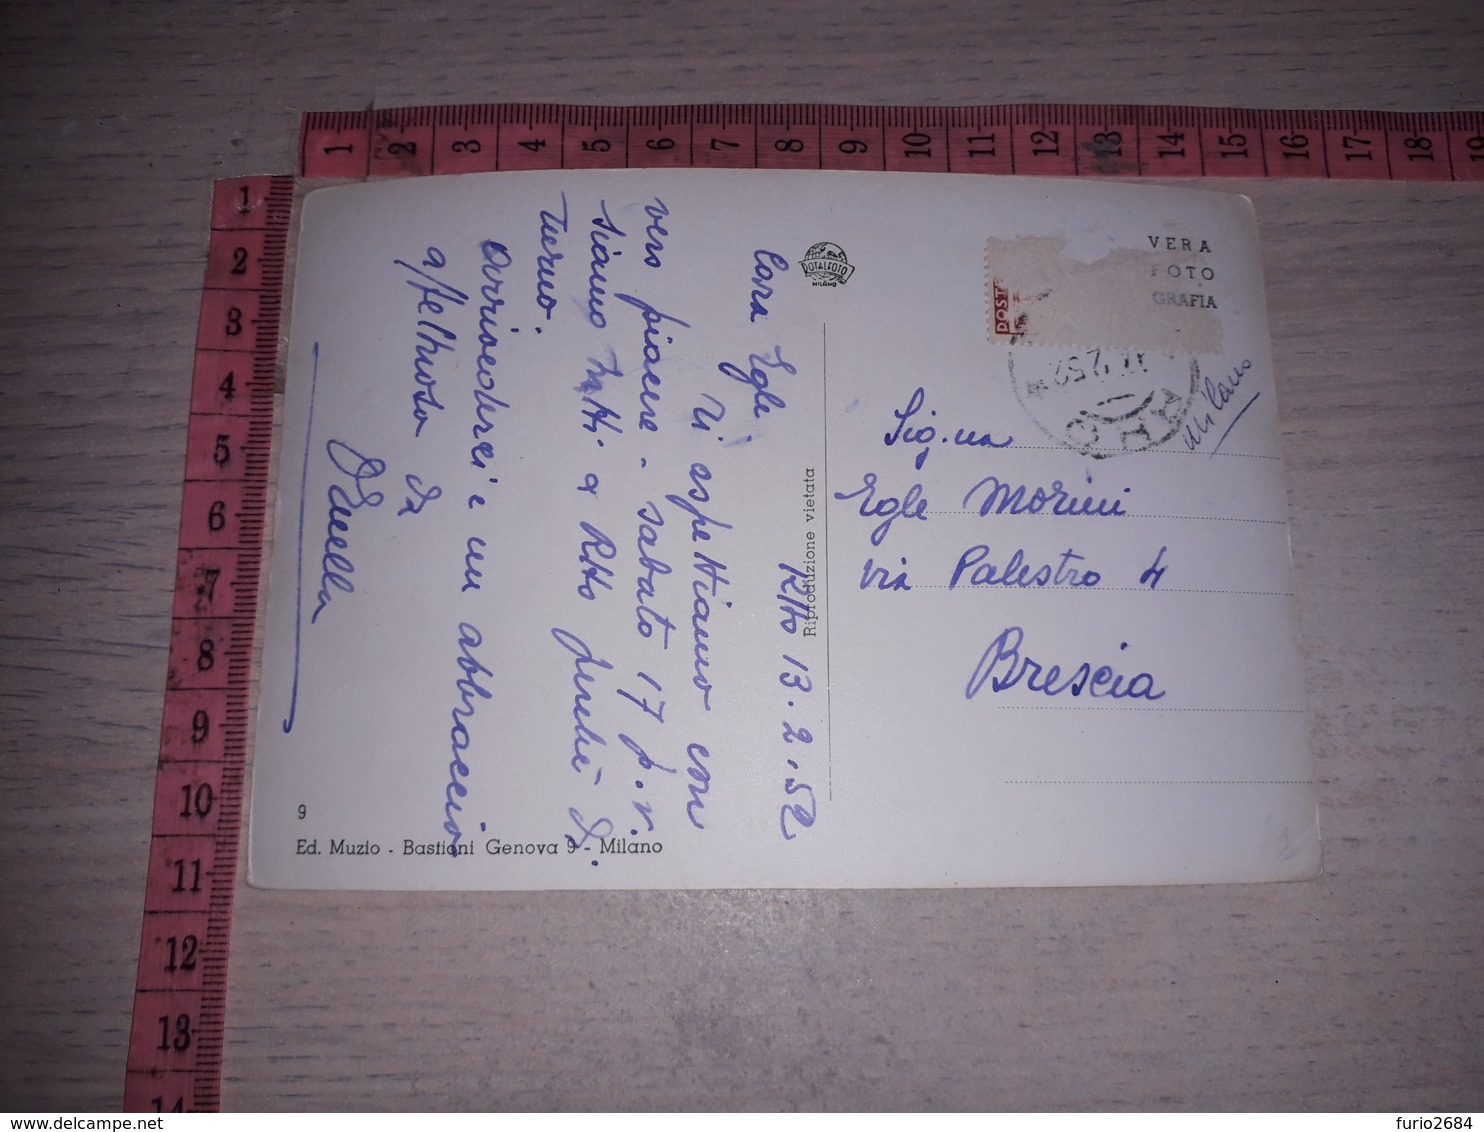 Rho 13.2.52
Cara Egle
Ti aspettiamo con
vero piacere - sabato 17 p.v.
siamo tutti a Rho perché di
turno.
Arrivederci e un abbraccio
affettuoso da
Ed. Muzio - Bastioni Genova 9 - Milano
9
Riproduzione vietata
ROTALFOTO
MILANO
VERA
FOTO
GRAFIA
POST
2.52
RHO
Milano
Sig.na
Egle Morini
via Palestro 4
Brescia
1 2 3 4 5 6 7 8 9 10 11 12 13 14 15 16 17 18 19
1
2
3
4
5
6
7
8
9
10
11
12
13
14
delcampe.net
furio2684